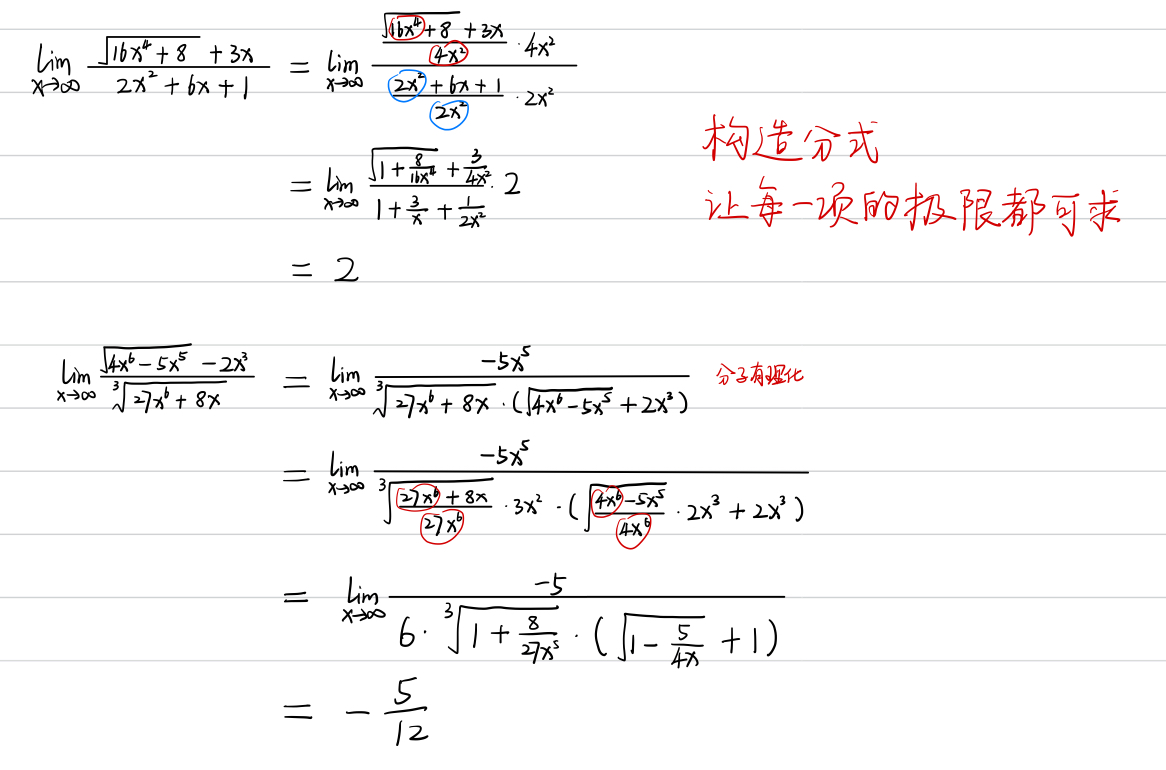 lim_{x→∞} (√(16x⁴+8) + 3x)/(2x² + 6x + 1) = lim_{x→∞} ((√(16x⁴+8) + 3x)/(4x²) · 4x²)/((2x² + 6x + 1)/(2x²) · 2x²)
构造分式
= lim_{x→∞} (√(1 + 8/(16x⁴)) + 3/(4x²))/(1 + 3/x + 1/(2x²)) · 2
让每一项的极限都可求
= 2
lim_{x→∞} (√(4x⁶ − 5x⁵) − 2x³)/(∛(27x⁶ + 8x)) = lim_{x→∞} (−5x⁵)/(∛(27x⁶ + 8x) · (√(4x⁶ − 5x⁵) + 2x³)) 分子有理化
= lim_{x→∞} (−5x⁵)/(∛((27x⁶ + 8x)/(27x⁶)) · 3x² · (√((4x⁶ − 5x⁵)/(4x⁶)) · 2x³ + 2x³))
= lim_{x→∞} (−5)/(6 · ∛(1 + 8/(27x⁵)) · (√(1 − 5/(4x)) + 1))
= − 5/12